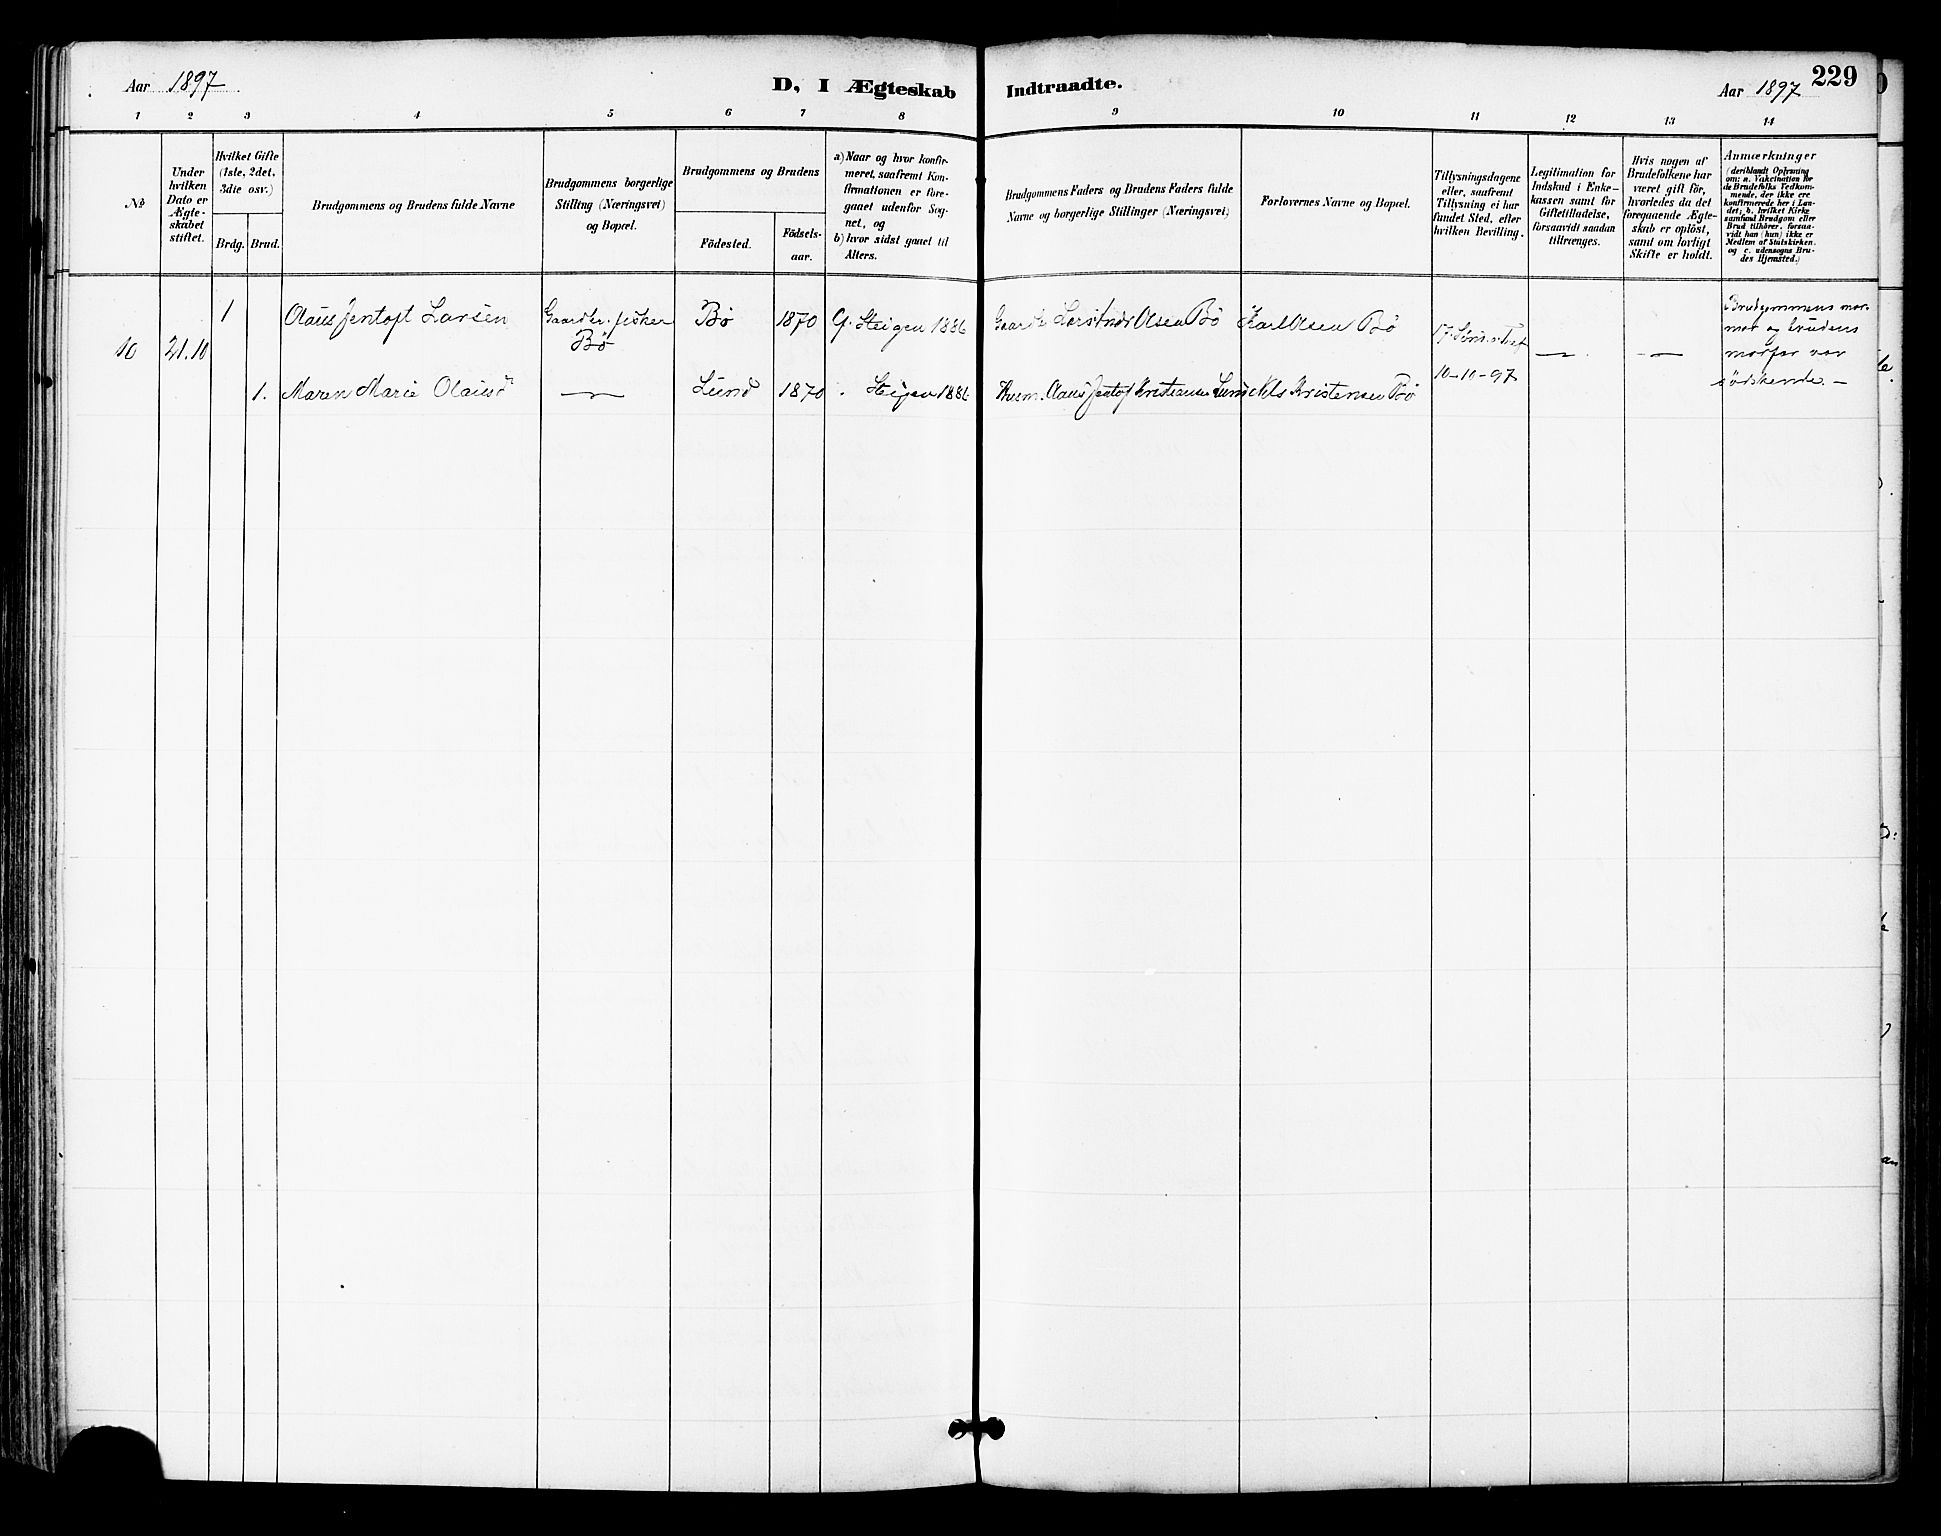 Aar 1897
D, I Ægteskab Indtraadte.
Aar 1897
229
1 2 3 4 5 6 7 8 9 10 11 12 13 14
No
Under hvilken Dato er Ægte-skabet stiftet.
Hvilket Gifte (1ste, 2det, 3die osv.)
Brdg. Brud.
Brudgommens og Brudens fulde Navne
Brudgommens borgerlige Stilling (Næringsvei) og Bopæl.
Brudgommens og Brudens
Födested.
Födsels-aar.
a) Naar og hvor konfir-meret, saafremt Kon-firmationen er fore-gaaet udenfor Sog-net, og
b) hvor sidst gaaet til Alters.
Brudgommens Faders og Brudens Faders fulde Navne og borgerlige Stillinger (Næringsvei)
Forlovernes Navne og Bopæl.
Tillysningsdagene eller, saafremt Tillysning ei har fundet Sted, efter hvilken Bevilling.
Legitimation for Indskud i Enke-kassen samt for Giftetilladelse, forsaavidt saadan tiltrænges.
Hvis nogen af Brudefolkene har været gift för, hvorledes da det foregaaende Ægte-skab er oplöst, samt om lovligt Skifte er holdt.
Anmærkninger (deriblandt Oplysning om: a. Vakcination for de Brudefolks Vedkom-mende, der ikke ere konfirmerede her i Lan-det; b. hvilket Kirke-samfund Brudgom eller Brud tilhörer, forsaa-vidt han (hun) ikke er Medlem af Statskirken, og c. udensogns Bru-des Hjemsted.)
10 21.10 1 Olaus Jentoft Larsen
fisker Bø
Bø 1870 Steigen 1886
Olsen Bø
Karl Olsen Bø
10-10-97
—
—
Brudgommens mor-
mor og brudens
morfar var
sødskende. —
1. Maren Marie Olausd
—
Lund 1870 Steigen 1886
Olaus Jentof Kristiansen Lund
Nels Kristensen Bø